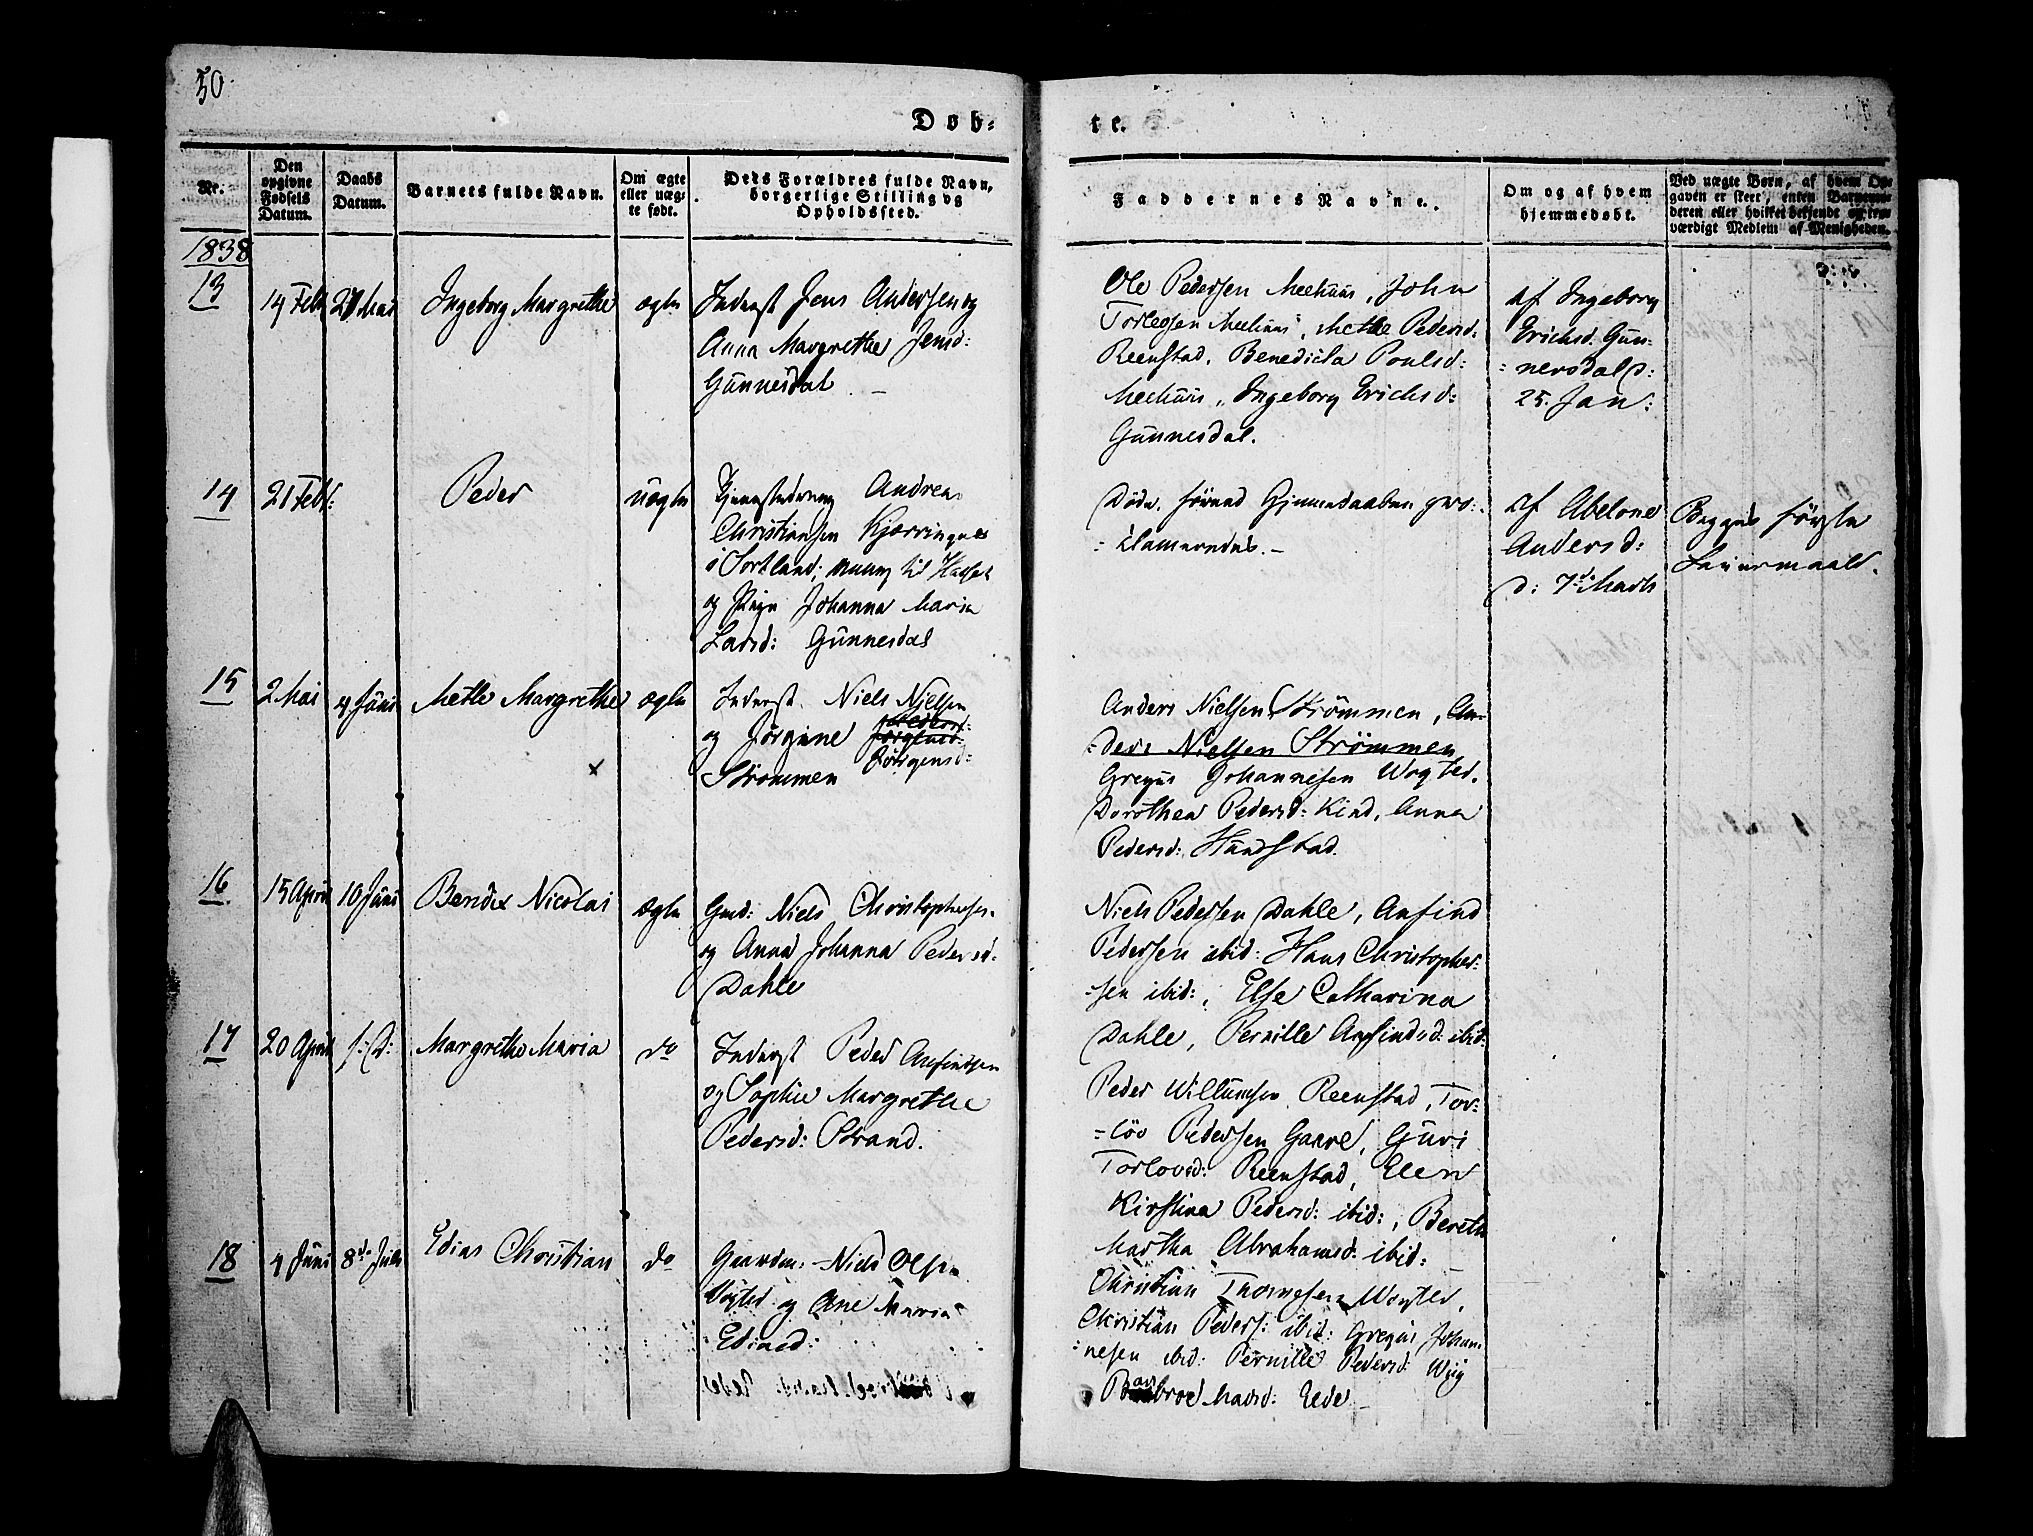 50
Døb-
te.
Nr.
Den opgivne Fødsels Datum.
Daabs Datum.
Barnets fulde Navn.
Om ægte eller uægte født.
Dets Forældres fulde Navn, borgerlige Stilling og Opholdssted.
Faddernes Navne.
Om og af hvem hjemmedøbt.
Ved uægte Børn, af hvem Opgaven er skeet, enten Barnemoderen eller hvilket bekjendt og troværdigt Medlem af Menigheden.
1838
13
14 Febr
27 Mai
Ingeborg Margrethe
ægte
Inderst Jens Andersen og
Anna Margrethe Jensd:
Gunnesdal
Ole Pedersen Meehuus, John
Torlegsen Meehuus, Mette Pedersd:
Reenstad, Benedicta Poulsd:
Meehuus, Ingeborg Erichsd:
Gunnesdal.
af Ingeborg
Erichsd: Gun-
nersdal d:
25. Jan:
14
21 Febr:
Peder
uægte
Andreas
Christiansen Kjerringnes
i Sortland, til
og Pige Johanna Maria
Larsd: Gunnesdal
Døde, førend Gjennemdaaben pro-
clameredes.
af Abelone
Andersd:
d: 7de Marts
Begges første
Leiermaal.
15
2 Mai
4 Juni
Mette Margrethe
ægte
Inderst. Niels Nielsen
og Jørgine
Jørgensd:
Strømmen
Anders Nielsen Strømmen, An-
ders Nielsen Strømmen
Gregus Johannesen Wogter.
Dorothea Pedersd: Kind, Anna
Pedersd: Hundstad.
16
15 April
10 Juni
Bendix Nicolai
ægte
Gmd: Niels Christophersen
og Anna Johanna Pedersd:
Dahle
Niels Pedersen Dahle, Anfind
Pedersen ibid: Hans Christopher-
sen ibid:, Else Catharina
Dahle, Pernille Anfindsd: ibid:
17
20 April
s: D:
Margrethe Maria
do
Inderst Peder Anfindsen
og Sophie Margrethe
Pedersd: Strand.
Peder Willumsen Reenstad, Tor-
løv Pedersen Gaare, Guri
Torlovsd: Reenstad, Elen
Kirstina Pedersd: ibid:, Bereth
Martha Abrahamsd: ibid:
18
4 Juni
8de Juli
Edias Christian
do
Gaardm: Niels Olsen
Vogter og Ane Maria
Ediasd:
Christian Thomesen Wogter,
Christian Peders: ibid: Gregus Johan-
nesen ibid: Pernille Pedersd: Wiig
Barbroe Madsd: Eede